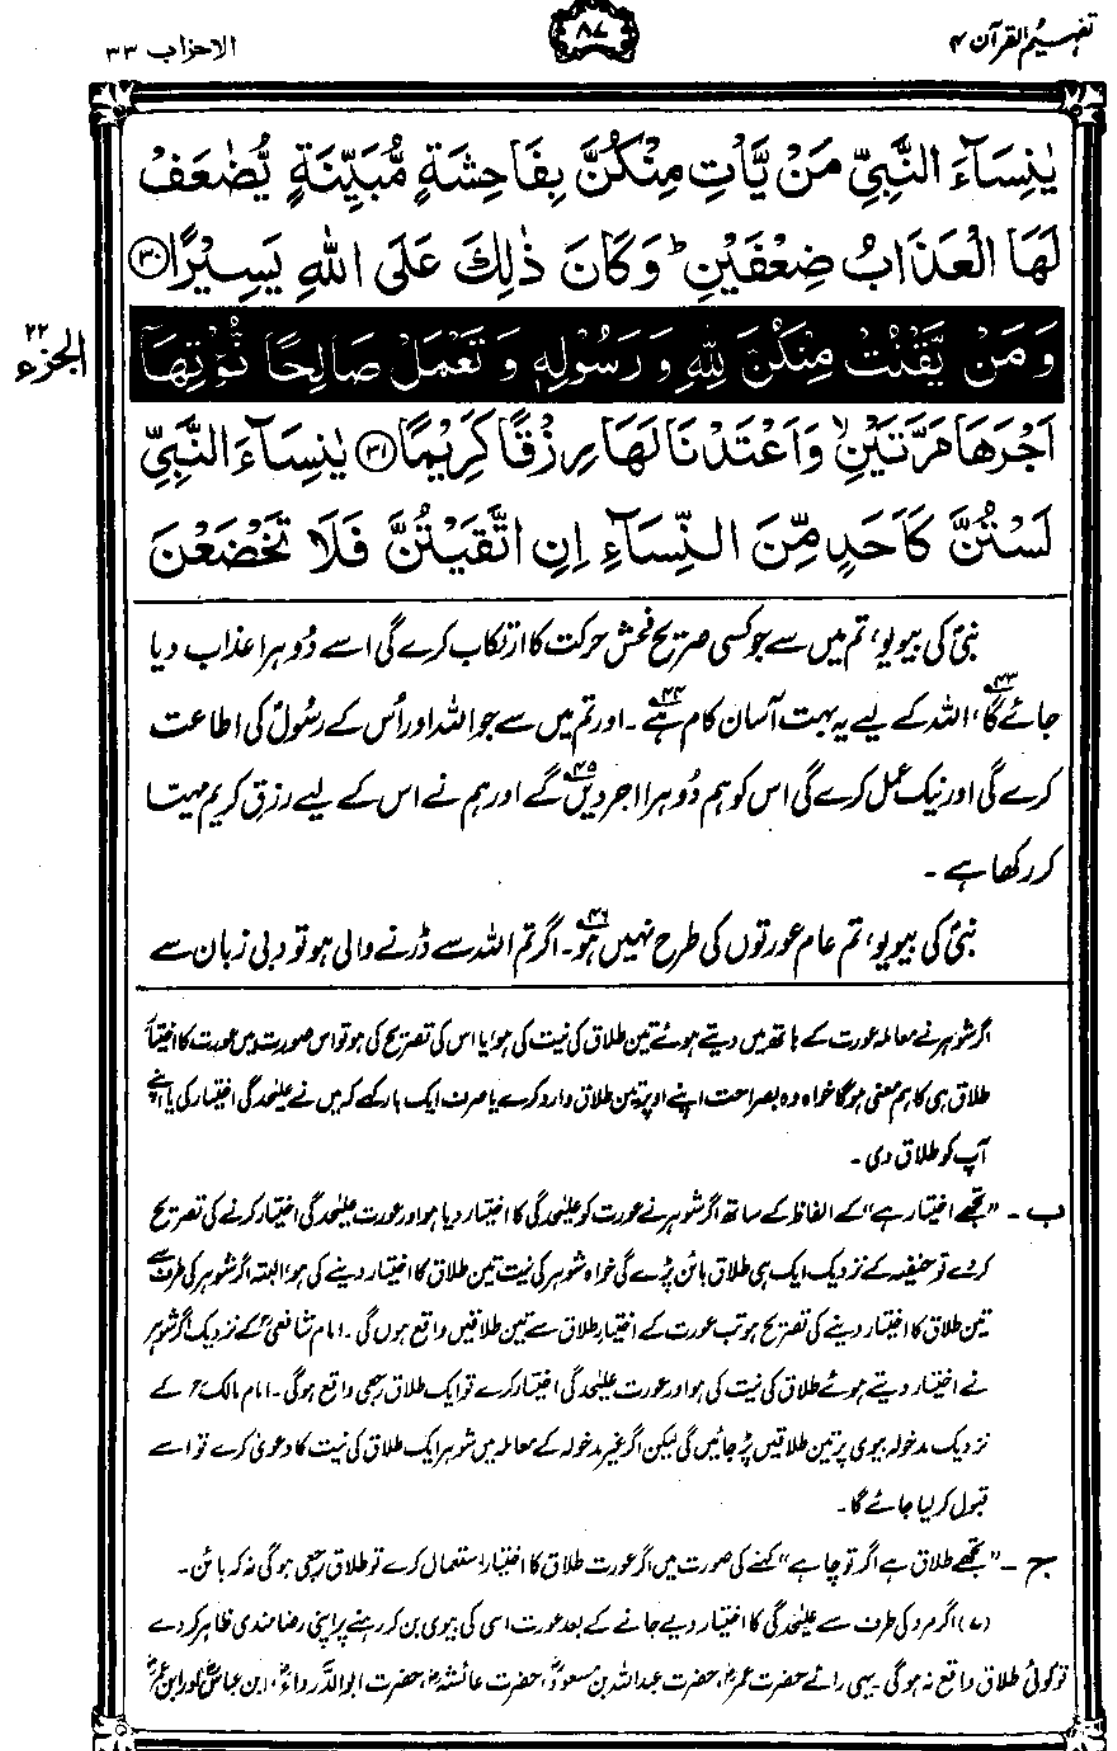 تفہیم القرآن ۴
۸۷
الاحزاب ۳۳
يٰنِسَآءَ النَّبِيِّ مَنْ يَّاْتِ مِنْكُنَّ بِفَاحِشَةٍ مُّبَيِّنَةٍ يُّضٰعَفْ
لَهَا الْعَذَابُ ضِعْفَيْنِ ؕ وَكَانَ ذٰلِكَ عَلَى اللّٰهِ يَسِيْرًا ۳۰
الجزء ۲۲
وَ مَنْ يَّقْنُتْ مِنْكُنَّ لِلّٰهِ وَ رَسُوْلِهٖ وَ تَعْمَلْ صَالِحًا نُّؤْتِهَآ
اَجْرَهَا مَرَّتَيْنِ ۙ وَاَعْتَدْنَا لَهَا رِزْقًا كَرِيْمًا ۳۱ يٰنِسَآءَ النَّبِيِّ
لَسْتُنَّ كَاَحَدٍ مِّنَ النِّسَآءِ اِنِ اتَّقَيْتُنَّ فَلَا تَخْضَعْنَ
نبیؐ کی بیویو، تم میں سے جو کسی صریح فحش حرکت کا ارتکاب کرے گی اسے دُوہرا عذاب دیا
جائے گا۴۳، اللہ کے لیے یہ بہت آسان کام ہے۴۴۔ اور تم میں سے جو اللہ اور اُس کے رسُولؐ کی اطاعت
کرے گی اور نیک عمل کرے گی اس کو ہم دُوہرا اجر دیں گے۴۵ اور ہم نے اس کے لیے رزقِ کریم مہیّا
کر رکھا ہے۔
نبیؐ کی بیویو، تم عام عورتوں کی طرح نہیں ہو۴۶۔ اگر تم اللہ سے ڈرنے والی ہو تو دبی زبان سے
اگر شوہر نے معاملہ عورت کے ہاتھ میں دیتے ہوئے تین طلاق کی نیت کی ہو، یا اس کی تصریح کی ہو تو اس صورت میں عورت کا اختیار
طلاق ہی کا ہم معنی ہوگا خواہ وہ بصراحت اپنے اوپر تین طلاق وارد کرے یا صرف ایک بار کہے کہ میں نے علیٰحدگی اختیار کی یا اپنے
آپ کو طلاق دی۔
ب۔ ”تجھے اختیار ہے“ کے الفاظ کے ساتھ اگر شوہر نے عورت کو علیٰحدگی کا اختیار دیا ہو اور عورت علیٰحدگی اختیار کرنے کی تصریح
کر دے تو حنفیہ کے نزدیک ایک ہی طلاق بائن پڑے گی خواہ شوہر کی نیت تین طلاق کا اختیار دینے کی ہو، البتہ اگر شوہر کی طرف سے
تین طلاق کا اختیار دینے کی تصریح ہو تب عورت کے اختیارِ طلاق سے تین طلاقیں واقع ہوں گی۔ امام شافعیؒ کے نزدیک اگر شوہر
نے اختیار دیتے ہوئے طلاق کی نیت کی ہو اور عورت علیٰحدگی اختیار کرے تو ایک طلاق رجعی واقع ہوگی۔ امام مالکؒ کے
نزدیک مدخولہ بیوی پر تین طلاقیں پڑ جائیں گی لیکن اگر غیر مدخولہ کے معاملہ میں شوہر ایک طلاق کی نیت کا دعویٰ کرے تو اسے
قبول کر لیا جائے گا۔
ج۔ ”تجھے طلاق ہے اگر تو چاہے“ کہنے کی صورت میں اگر عورت طلاق کا اختیار استعمال کرے تو طلاق رجعی ہوگی نہ کہ بائن۔
(۷) اگر مرد کی طرف سے علیٰحدگی کا اختیار دیے جانے کے بعد عورت اسی کی بیوی بن کر رہنے پر اپنی رضامندی ظاہر کر دے
تو کوئی طلاق واقع نہ ہوگی۔ یہی رائے حضرت عمرؓ، حضرت عبداللہ بن مسعودؓ، حضرت عائشہؓ، حضرت ابوالدَّرداءؓ، ابن عباسؓ اور ابن عمرؓ